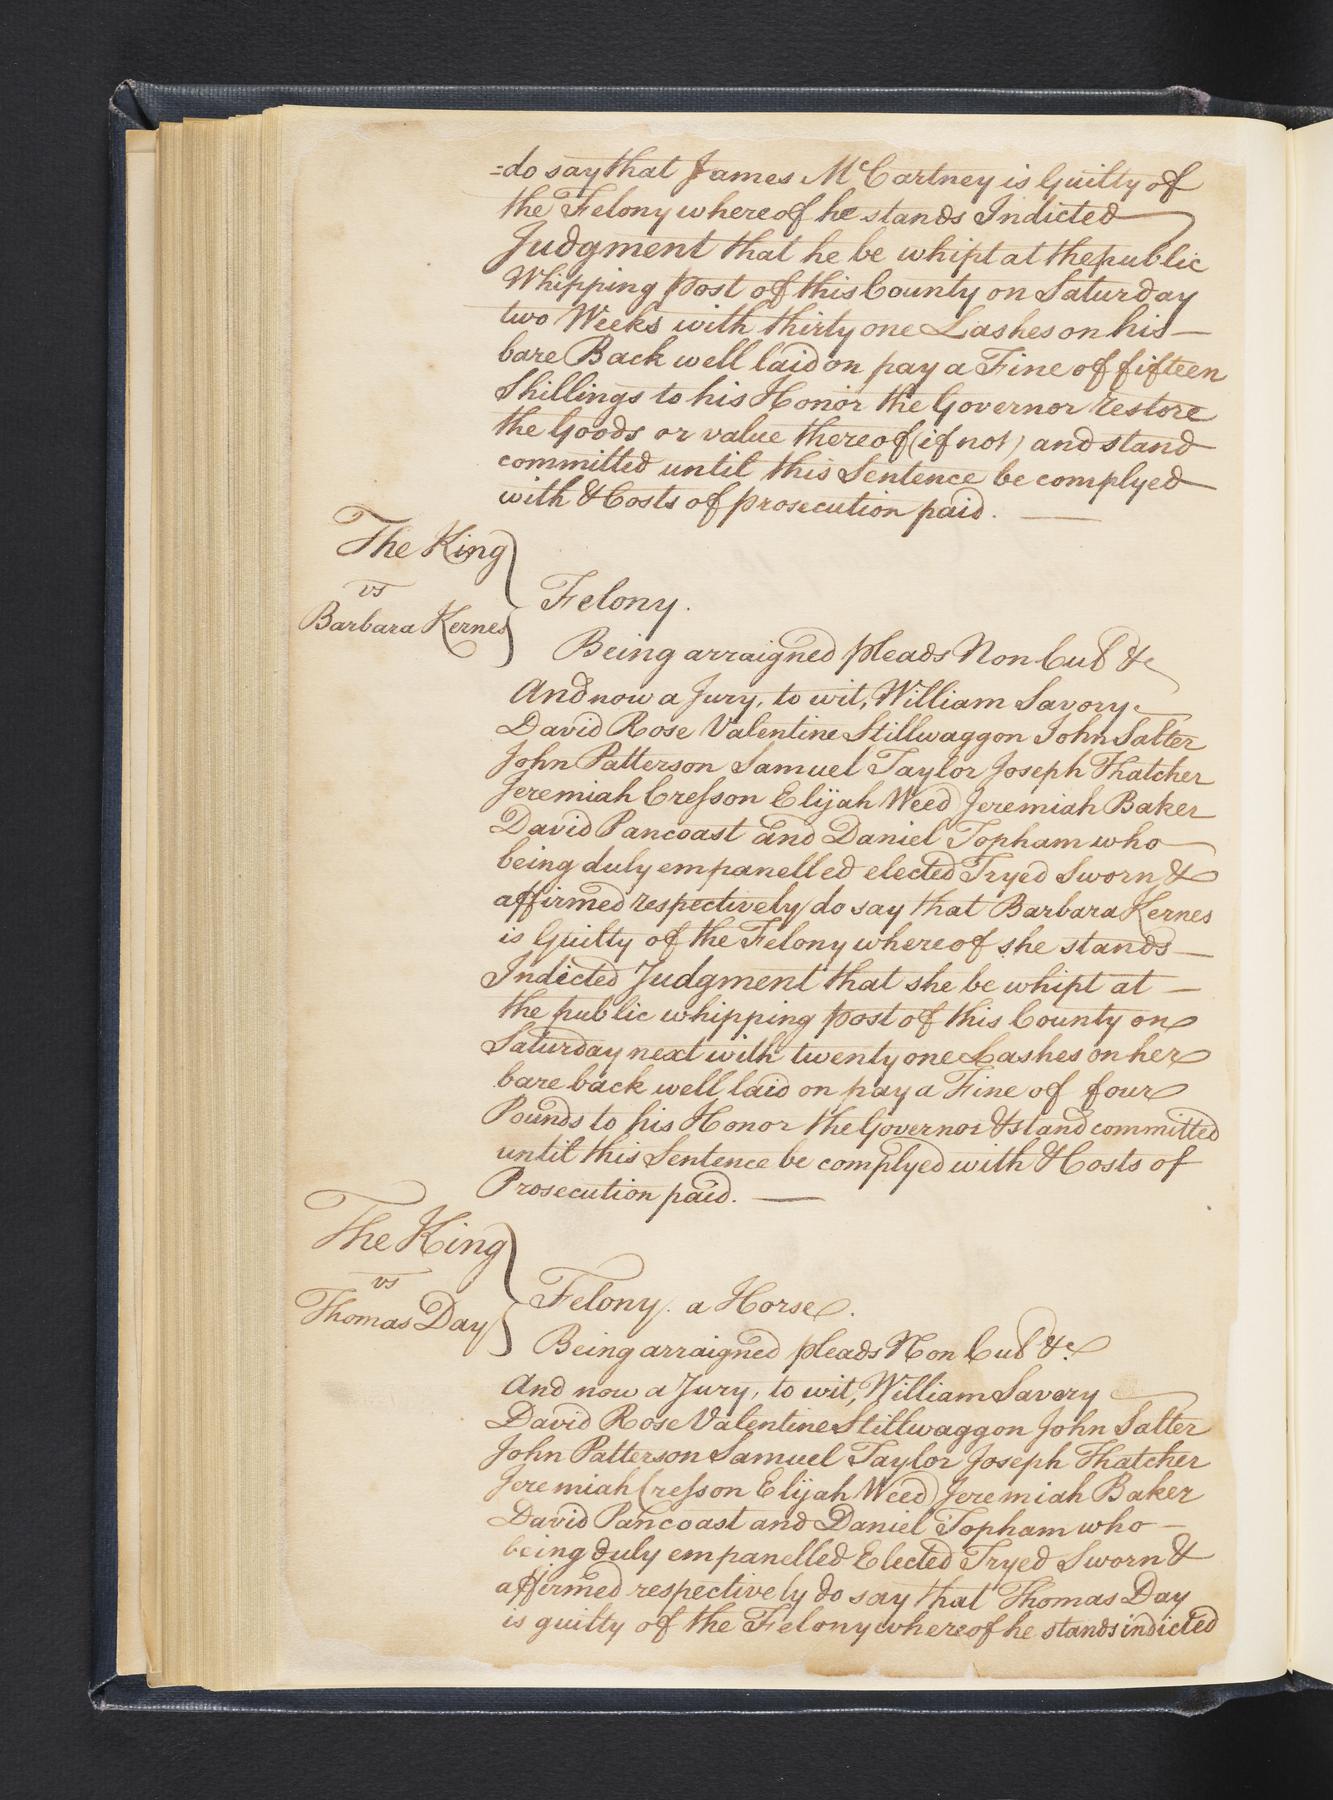 =do say that James McCartney is Guilty of
the Felony whereof he stands Indicted
Judgment that he be whipt at the public
Whipping post of this County on Saturday
two Weeks with thirty one Lashes on his—
bare Back well laid on pay a Fine of fifteen
Shillings to his Honor the Governor restore
the Goods or value thereof (if not) and stand
committed until this Sentence be complyed
with & Costs of prosecution paid. —
The King
vs
Barbara Kernes
Felony.
Being arraigned pleads Non Cul &c
And now a Jury, to wit, William Savory
David Rose Valentine Stillwaggon John Salter
John Patterson Samuel Taylor Joseph Thatcher
Jeremiah Cresson Elijah Weed Jeremiah Baker
David Pancoast and Daniel Topham who
being duly empanelled elected Tryed Sworn &
affirmed respectively do say that Barbara Kernes
is Guilty of the Felony whereof she stands—
Indicted Judgment that she be whipt at —
the public whipping post of this County on
Saturday next with twenty one Lashes on her
bare back well laid on pay a Fine of four
Pounds to his Honor the Governor & stand committed
until this Sentence be complyed with & Costs of
Prosecution paid. —
The King
vs
Thomas Day
Felony. a Horse.
Being arraigned pleads Non Cul &c.
And now a Jury, to wit, William Savery
David Rose Valentine Stillwaggon John Salter
John Patterson Samuel Taylor Joseph Thatcher
Jeremiah Cresson Elijah Weed Jeremiah Baker
David Pancoast and Daniel Topham who —
being duly empanelled Elected Tryed Sworn &
affirmed respectively do say that Thomas Day
is guilty of the Felony whereof he stands indicted